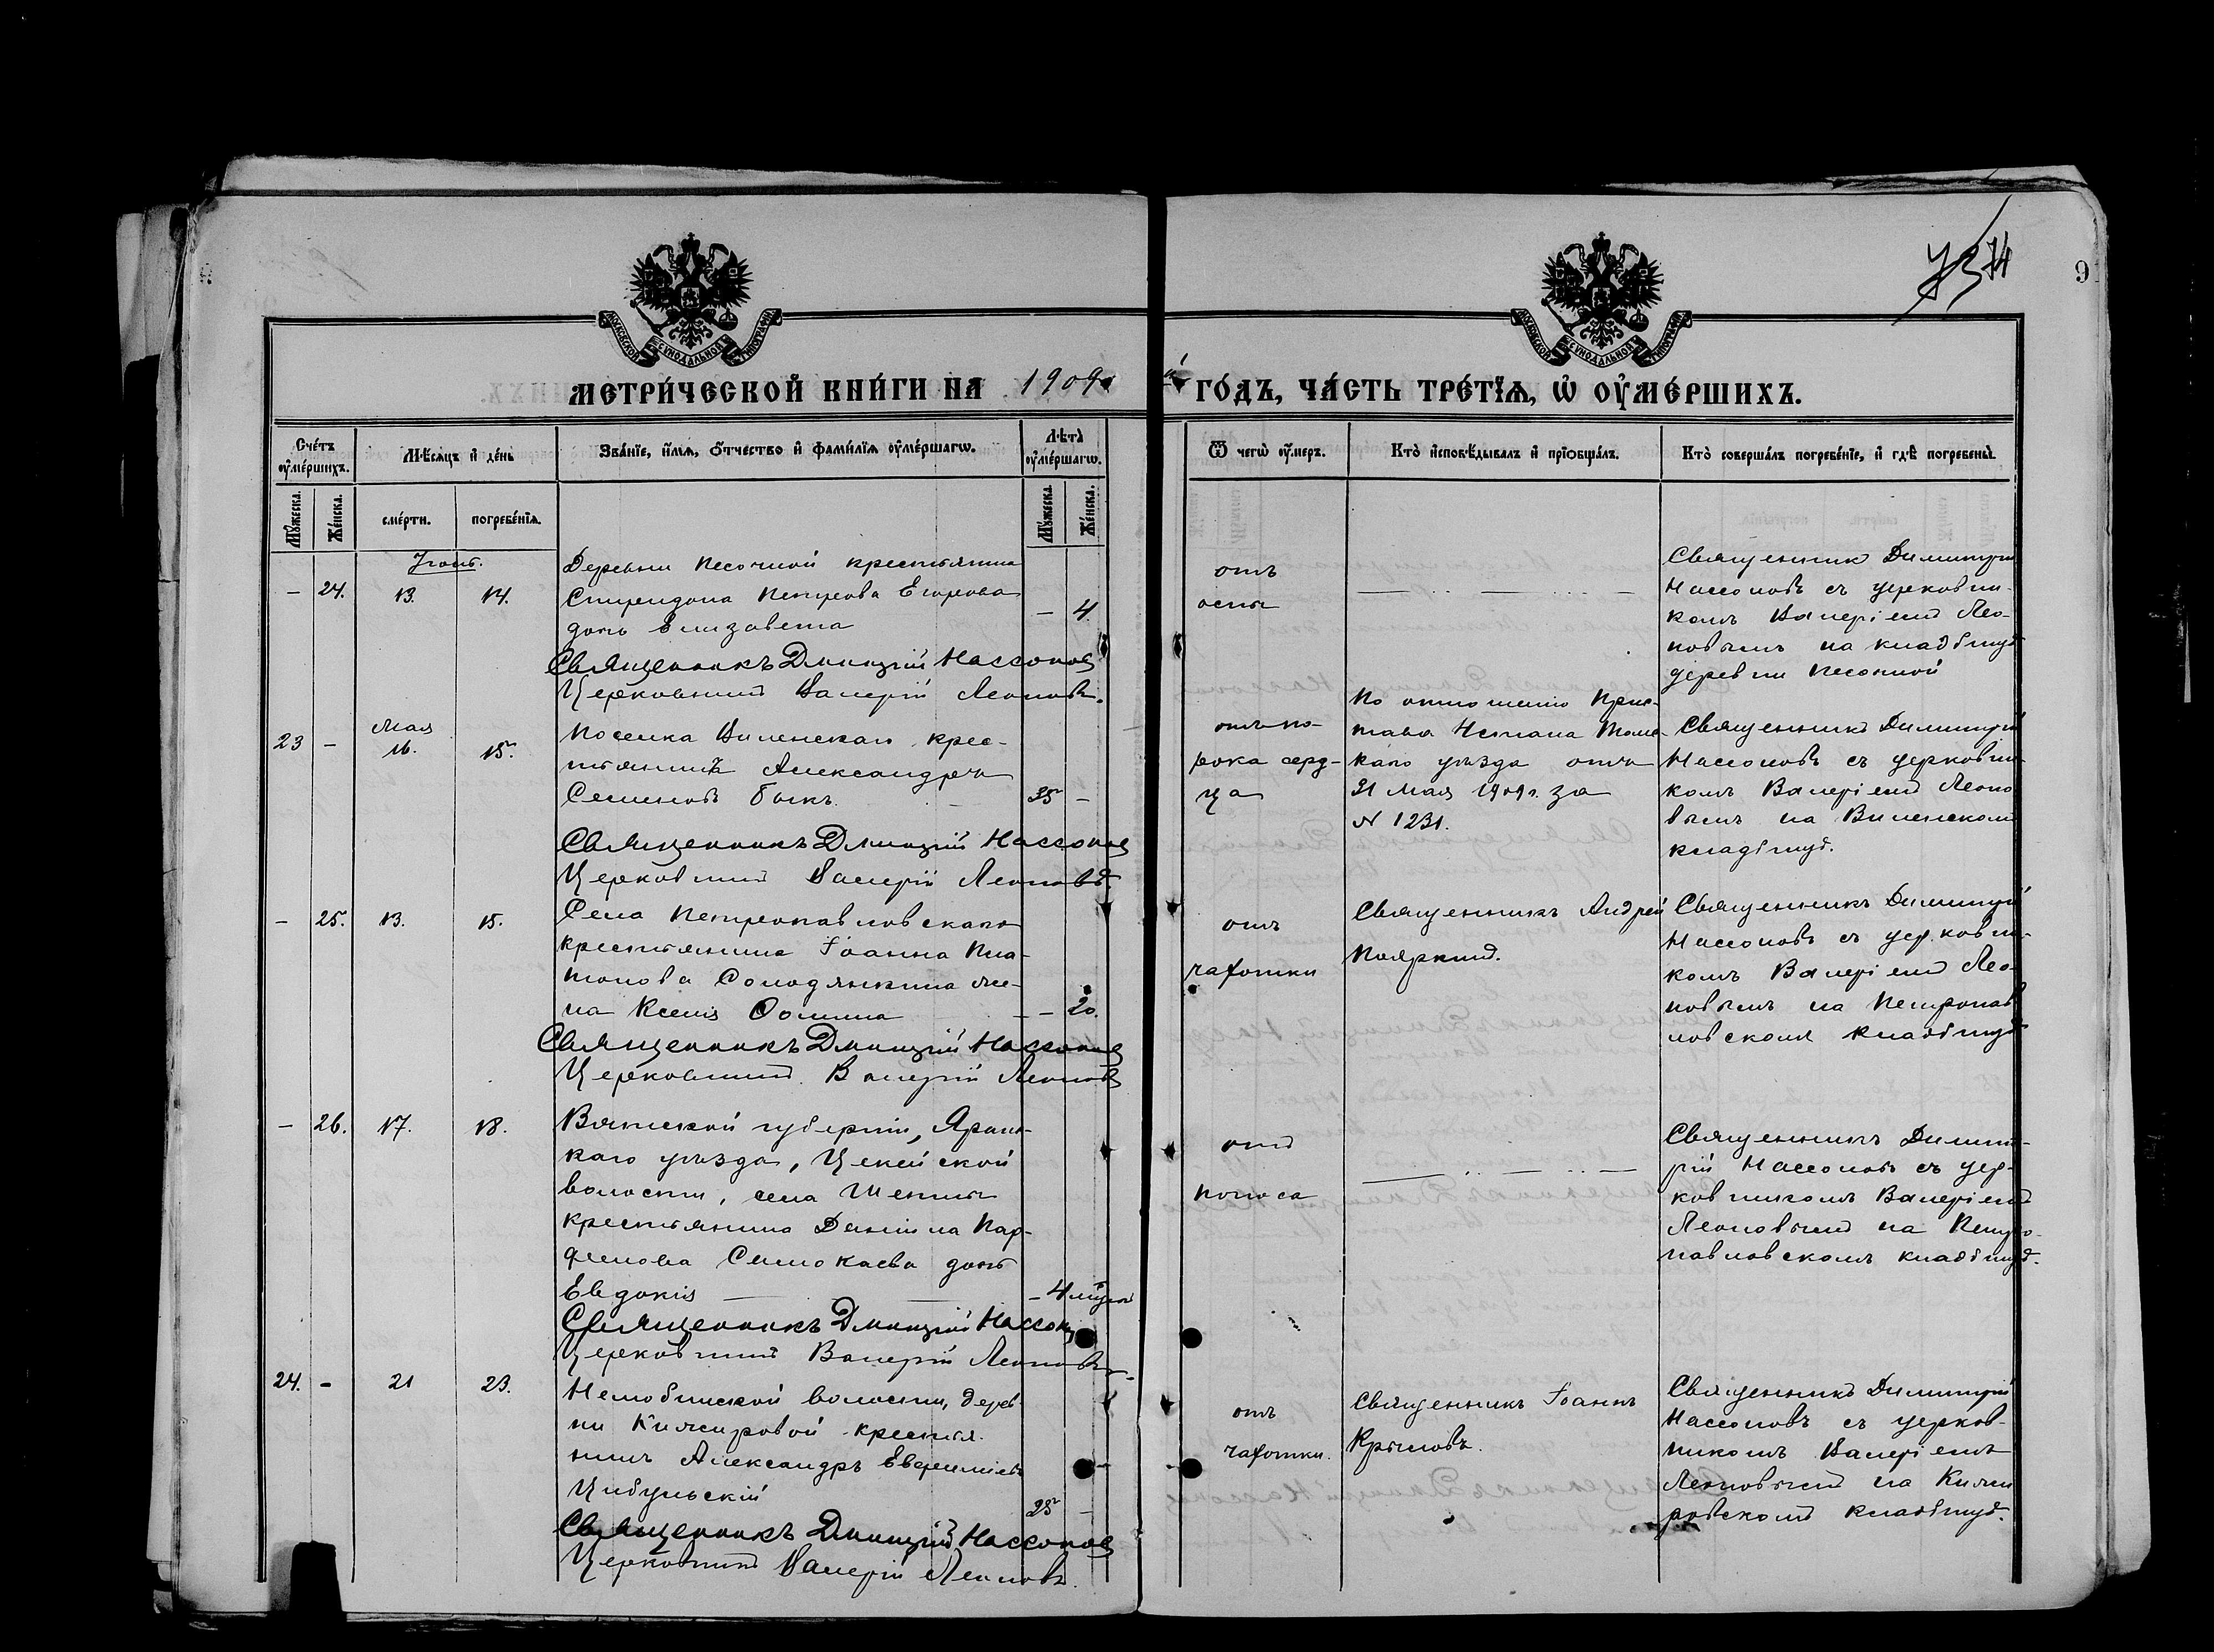 73 74
9
МОСКОВСКОЙ СѴНОДАЛЬНОЙ ТИПОГРАФІИ
МОСКОВСКОЙ СѴНОДАЛЬНОЙ ТИПОГРАФІИ
МЕТРИ́ЧЕСКОЙ КНИ́ГИ НА 1909й ГО́ДЪ, ЧА́СТЬ ТРЕ́ТЇѦ, Ѡ҆ ОУ҆МЕ́РШИХЪ.
Сче́тъ оу҆ме́ршихъ.
Мѣ́сѧцъ и҆ де́нь
Зва́нїе, и҆́мѧ, ѻ҆́тчество и҆ фами́лїѧ оу҆ме́ршагѡ.
Лѣ̀та̀ оу҆ме́ршагѡ.
Ѿ чегѡ̀ оу҆́меръ.
Кто̀ и҆сповѣ́дывалъ и҆ прїѻбща́лъ.
Кто̀ соверша́лъ погребе́нїе, и҆ гдѣ̀ погребены̀.
Мꙋ́жеска.
Же́нска.
сме́рти.
погребе́нїѧ.
Мꙋ́жеска.
Же́нска.
Іюнь.
– 24. 13. 14.
Деревни Песочной крестьянина
Спиридона Петрова Егорова
дочь Елизавета
– 4.
Священникъ Дмитрій Нассонов
Церковникъ Валерій Леоновъ.
отъ
оспы
Священник Димитрій
Нассоновъ съ церковни-
комъ Валеріемъ Лео-
новымъ на кладбищѣ
деревни Песочной
23 –
Мая
16. 15.
Поселка Виленскаго крес-
тьянинъ Александръ
Семеновъ Быкъ.
35 –
Священникъ Дмитрій Нассонов
Церковникъ Валерій Леоновъ.
отъ по-
рока серд-
ца
По отношенію Прис-
тава Томс-
каго уѣзда отъ
31 Мая 1909 г. за
N 1231.
Священникъ Димитрій
Нассоновъ съ церковни-
комъ Валеріемъ Леоно
вымъ на Виленскомъ
кладбищѣ.
– 25. 13. 15.
Села Петропавловскаго
крестьянина Іоанна Пла-
тонова Солодянкина же-
на Ксенія Ѳомина
– 20.
Священникъ Дмитрій Нассонов
Церковникъ Валерій Леоновъ
отъ
чахотки
Священникъ Андрей
Пояркинъ.
Священникъ Димитрій
Нассоновъ съ церковни-
комъ Валеріемъ Лео-
новымъ на Петропав
ловскомъ кладбищѣ
– 26. 17. 18.
Вятской губерніи, Яранс-
каго уѣзда,
волости, села
крестьянина Даніила Пар-
фенова дочь
Евдокія
– 4 мѣсяц
Священникъ Дмитрій Нассонов
Церковникъ Валерій Леоновъ.
отъ
поноса
Священникъ Димит-
рій Нассоновъ съ цер-
ковникомъ Валеріемъ
Леоновымъ на Петро-
павловскомъ кладбищѣ.
24. – 21 23.
Нелюбинской волости, дерев-
ни Кижировой крестья-
нинъ Александръ Евфиміевъ
Цибульскій
25 –
Священникъ Дмитрій Нассонов
Церковникъ Валерій Леоновъ.
отъ
чахотки.
Священникъ Іоаннъ
Крыловъ.
Священникъ Димитрій
Нассоновъ съ церков-
никомъ Валеріемъ
Леоновымъ на Кижи
ровскомъ кладбищѣ.